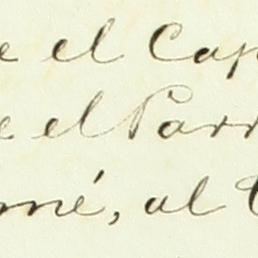 e el Cap
e el Parr
mé, al